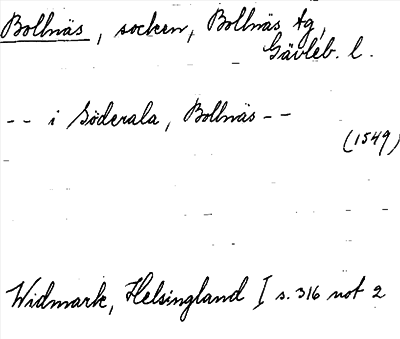 Bollnäs, socken, Bollnäs tg,
Gävleb. l.
-- i Söderala, Bollnäs --
(1549)
Widmark, Helsingland I s. 316 not 2